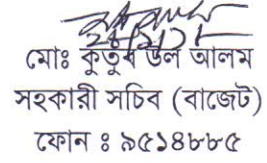 মোঃ কুতুব উল আলম
সহকারী সচিব (বাজেট)
ফোন ঃ ৯৫১৪৮৮৫